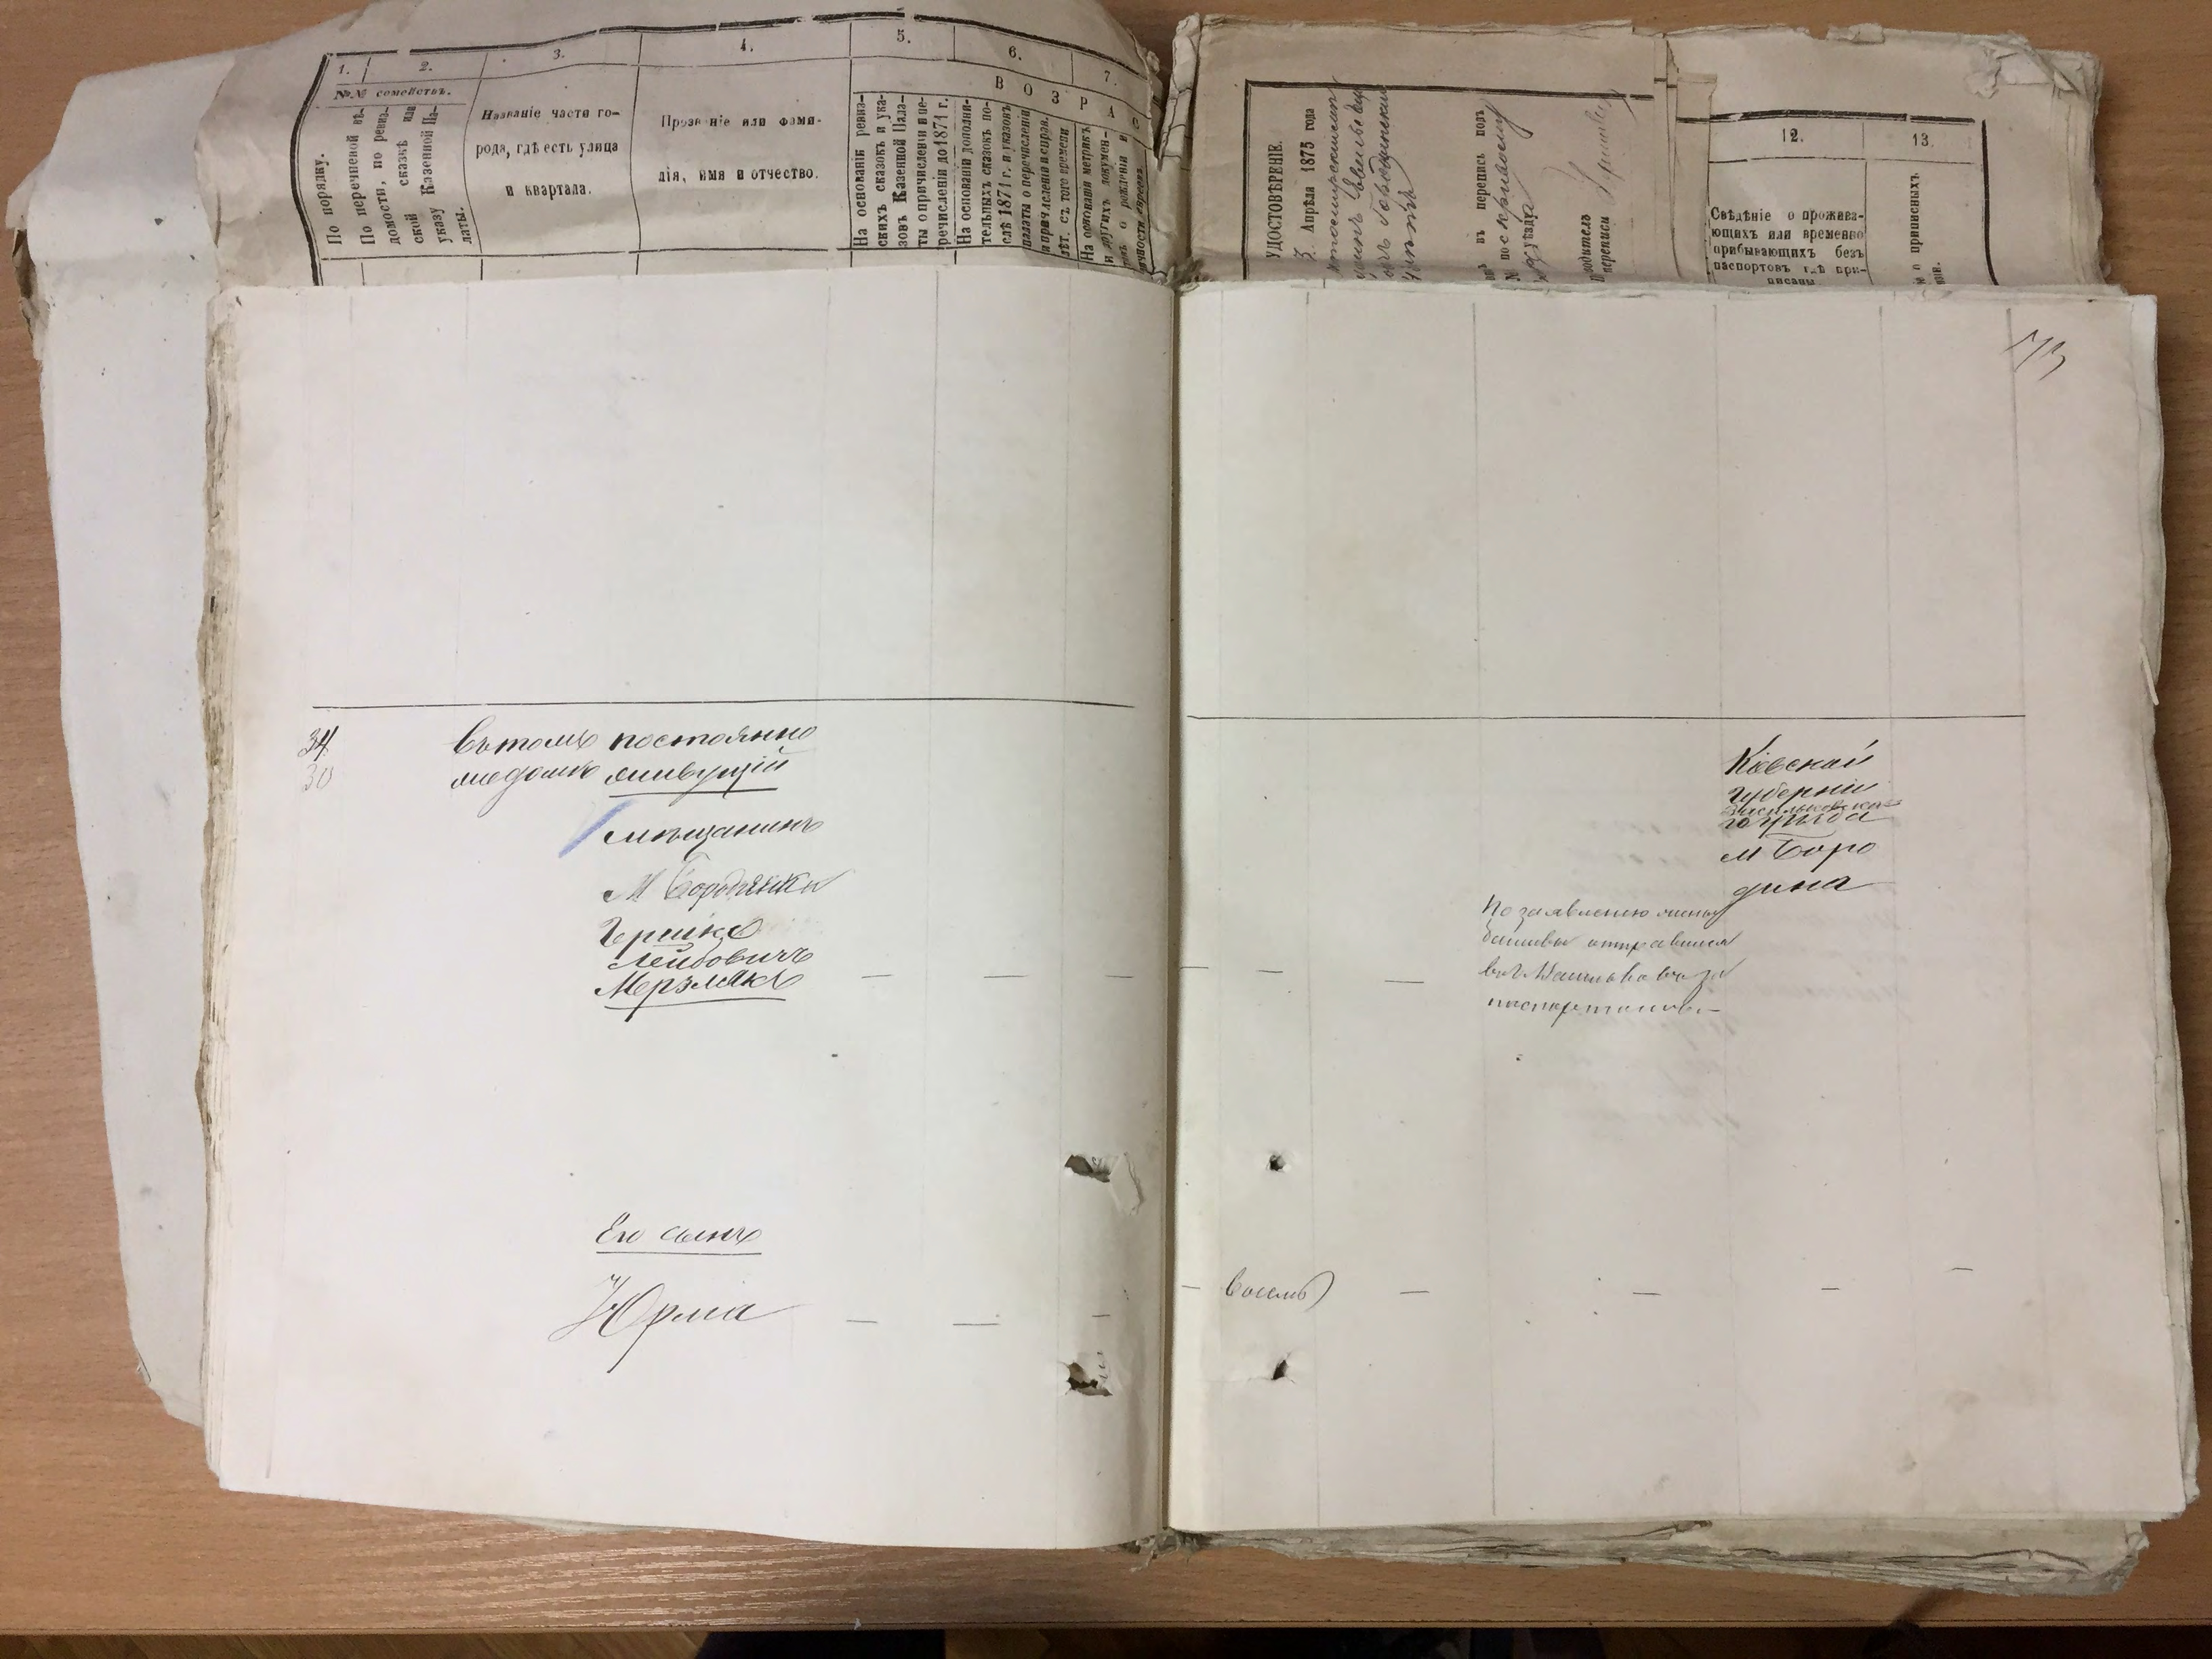 1.
2.
3.
4.
5.
6.
7.
№№ семействъ.
В О З Р А С
По порядку.
По перечневой вѣ-
домости, по ревиз-
ской сказкѣ или
указу Казенной Па-
латы.
Названіе части го-
рода, гдѣ есть улица
и квартала.
Прозваніе или фами-
лія, имя и отчество.
На основаніи ревиз-
скихъ сказокъ и ука-
зовъ Казенной Пала-
ты о причисленіи и пе-
речисленіи до 1871 г.
На основаніи дополни-
тельныхъ сказокъ по-
слѣ 1871 г. и указовъ
палаты о перечисленіи
и причисленіи и справ.
лѣт. съ того времени
На основаніи метрикъ
и другихъ докумен-
о рожденіи и
УДОСТОВѢРЕНІЕ.
3 Апрѣля 1875 года
въ перепись подъ
№
уѣзда
переписи
12.
13.
Свѣдѣніе о прожива-
ющихъ или временно
прибывающихъ безъ
паспортовъ гдѣ при-
писаны
о приписныхъ
173
34
30
въ томъ постоянно
же домѣ живущій
мѣщанинъ
М Бородянки
Гершко
Лейбовичъ
Мерзлякъ
Кіевской
Губерніи
Васильковска
го уѣзда
м Боро
дянка
По заявленію жены
отправился
въ г. Васильковъ за
паспортомъ —
Его сынъ
Юрма
восемь